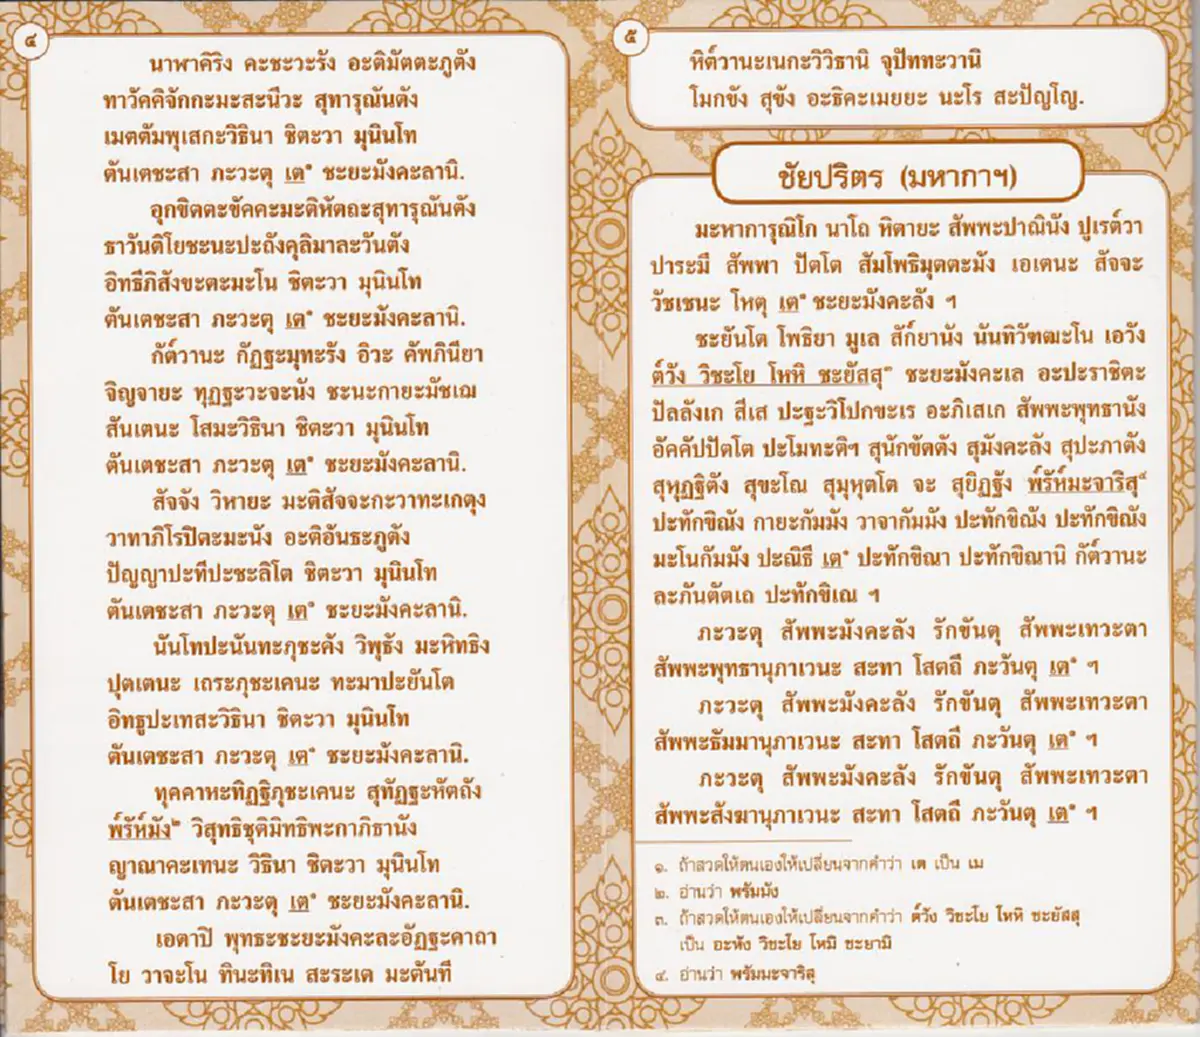 ๔
นาฬาคิริง คะชะวะรัง อะติมัตตะภูตัง
ทาวัคคิจักกะมะสะนีวะ สุทารุณันตัง
เมตตัมพุเสกะวิธินา ชิตะวา มุนินโท
ตันเตชะสา ภะวะตุ เต๑ ชะยะมังคะลานิ.
อุกขิตตะขัคคะมะติหัตถะสุทารุณันตัง
ธาวันติโยชะนะปะถังคุลิมาละวันตัง
อิทธีภิสังขะตะมะโน ชิตะวา มุนินโท
ตันเตชะสา ภะวะตุ เต๑ ชะยะมังคะลานิ.
กัต์วานะ กัฏฐะมุทะรัง อิวะ คัพภินียา
จิญจายะ ทุฏฐะวะจะนัง ชะนะกายะมัชเฌ
สันเตนะ โสมะวิธินา ชิตะวา มุนินโท
ตันเตชะสา ภะวะตุ เต๑ ชะยะมังคะลานิ.
สัจจัง วิหายะ มะติสัจจะกะวาทะเกตุง
วาทาภิโรปิตะมะนัง อะติอันธะภูตัง
ปัญญาปะทีปะชะลิโต ชิตะวา มุนินโท
ตันเตชะสา ภะวะตุ เต๑ ชะยะมังคะลานิ.
นันโทปะนันทะภุชะคัง วิพุธัง มะหิทธิง
ปุตเตนะ เถระภุชะเคนะ ทะมาปะยันโต
อิทธูปะเทสะวิธินา ชิตะวา มุนินโท
ตันเตชะสา ภะวะตุ เต๑ ชะยะมังคะลานิ.
ทุคคาหะทิฏฐิภุชะเคนะ สุทัฏฐะหัตถัง
พ์รัห์มัง๒ วิสุทธิชุติมิทธิพะกาภิธานัง
ญาณาคะเทนะ วิธินา ชิตะวา มุนินโท
ตันเตชะสา ภะวะตุ เต๑ ชะยะมังคะลานิ.
เอตาปิ พุทธะชะยะมังคะละอัฏฐะคาถา
โย วาจะโน ทินะทิเน สะระเต มะตันที
๕
หิต์วานะเนกะวิวิธานิ จุปัททะวานิ
โมกขัง สุขัง อะธิคะเมยยะ นะโร สะปัญโญ.
ชัยปริตร (มหากาฯ)
มะหาการุณิโก นาโถ หิตายะ สัพพะปาณินัง ปูเรต์วา
ปาระมี สัพพา ปัตโต สัมโพธิมุตตะมัง เอเตนะ สัจจะ
วัชเชนะ โหตุ เต๑ ชะยะมังคะลัง ฯ
ชะยันโต โพธิยา มูเล สัก์ยานัง นันทิวัฑฒะโน เอวัง
ต์วัง วิชะโย โหหิ ชะยัสสุ๓ ชะยะมังคะเล อะปะราชิตะ
ปัลลังเก สีเส ปะฐะวิโปกขะเร อะภิเสเก สัพพะพุทธานัง
อัคคัปปัตโต ปะโมทะติฯ สุนักขัตตัง สุมังคะลัง สุปะภาตัง
สุหุฏฐิตัง สุขะโณ สุมุหุตโต จะ สุยิฏฐัง พ์รัห์มะจาริสุ๔
ปะทักขิณัง กายะกัมมัง วาจากัมมัง ปะทักขิณัง ปะทักขิณัง
มะโนกัมมัง ปะณิธี เต๑ ปะทักขิณา ปะทักขิณานิ กัต์วานะ
ละภันตัตเถ ปะทักขิเณ ฯ
ภะวะตุ สัพพะมังคะลัง รักขันตุ สัพพะเทวะตา
สัพพะพุทธานุภาเวนะ สะทา โสตถี ภะวันตุ เต๑ ฯ
ภะวะตุ สัพพะมังคะลัง รักขันตุ สัพพะเทวะตา
สัพพะธัมมานุภาเวนะ สะทา โสตถี ภะวันตุ เต๑ ฯ
ภะวะตุ สัพพะมังคะลัง รักขันตุ สัพพะเทวะตา
สัพพะสังฆานุภาเวนะ สะทา โสตถี ภะวันตุ เต๑ ฯ
๑. ถ้าสวดให้ตนเองให้เปลี่ยนจากคำว่า เต เป็น เม
๒. อ่านว่า พรัมมัง
๓. ถ้าสวดให้ตนเองให้เปลี่ยนจากคำว่า ต์วัง วิชะโย โหหิ ชะยัสสุ
เป็น อะหัง วิชะโย โหมิ ชะยามิ
๔. อ่านว่า พรัมมะจาริสุ